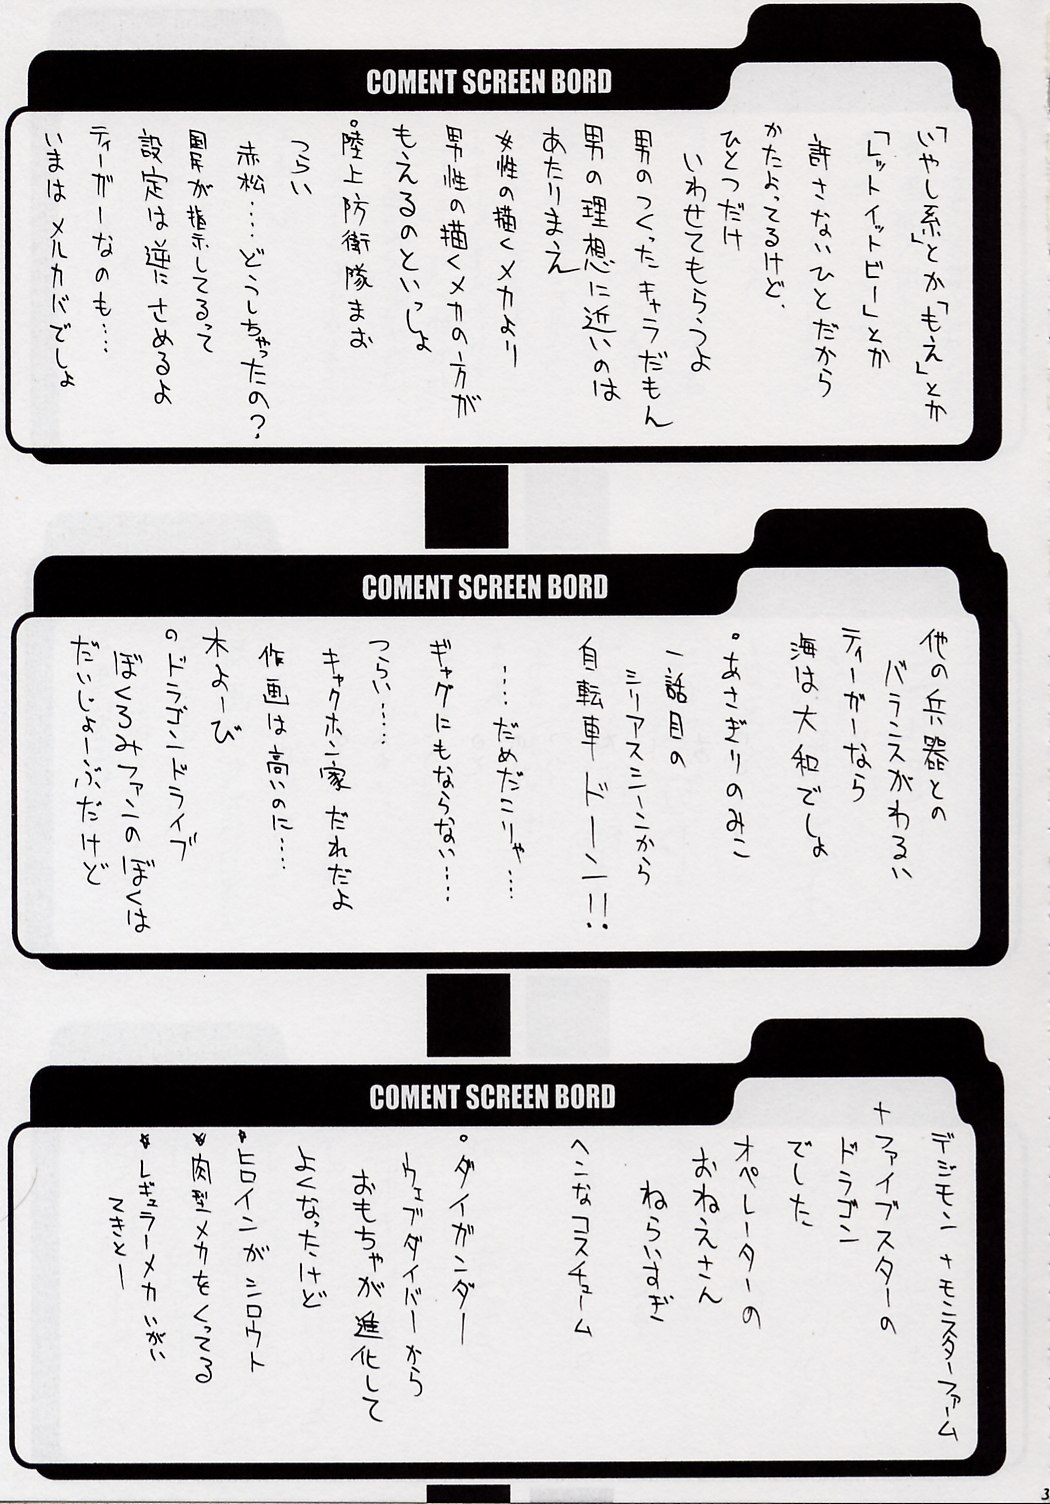 COMENT SCREEN BORD
「いやし系」とか「もえ」とか
「レットイットビー」とか
許さないひとだから
かたよってるけど、
ひとつだけ
いわせてもらうよ
男のつくったキャラだもん
男の理想に近いのは
あたりまえ
女性の描くメカより
男性の描くメカの方が
もえるのといっしょ
。陸上防衛隊まお
つらい
赤松‥‥どうしちゃったの?
が指示してるって
設定は逆にさめるよ
ティーガーなのも‥‥
いまはメルカバでしょ
COMENT SCREEN BORD
他の兵器との
バランスがわるい
ティーガーなら
海は大和でしょ
。あさぎりのみこ
一話目の
シリアスシーンから
自転車ドーン!!
‥‥だめだこりゃ‥‥
ギャグにもならない‥‥
つらい‥‥
キャクホン家だれだよ
作画は高いのに‥‥
木よーび
のドラゴンドライブ
ぼくろみファンのぼくは
だいじょーぶだけど
COMENT SCREEN BORD
デジモン+モンスターファーム
+ファイブスターの
ドラゴン
でした
オペレーターの
おねえさん
ねらいすぎ
ヘンなコスチューム
。ダイガンダー
ウェブダイバーから
おもちゃが進化して
よくなったけど
★ヒロインがシロウト
★肉型メカをくってる
★レギュラーメカいがい
てきとー
3